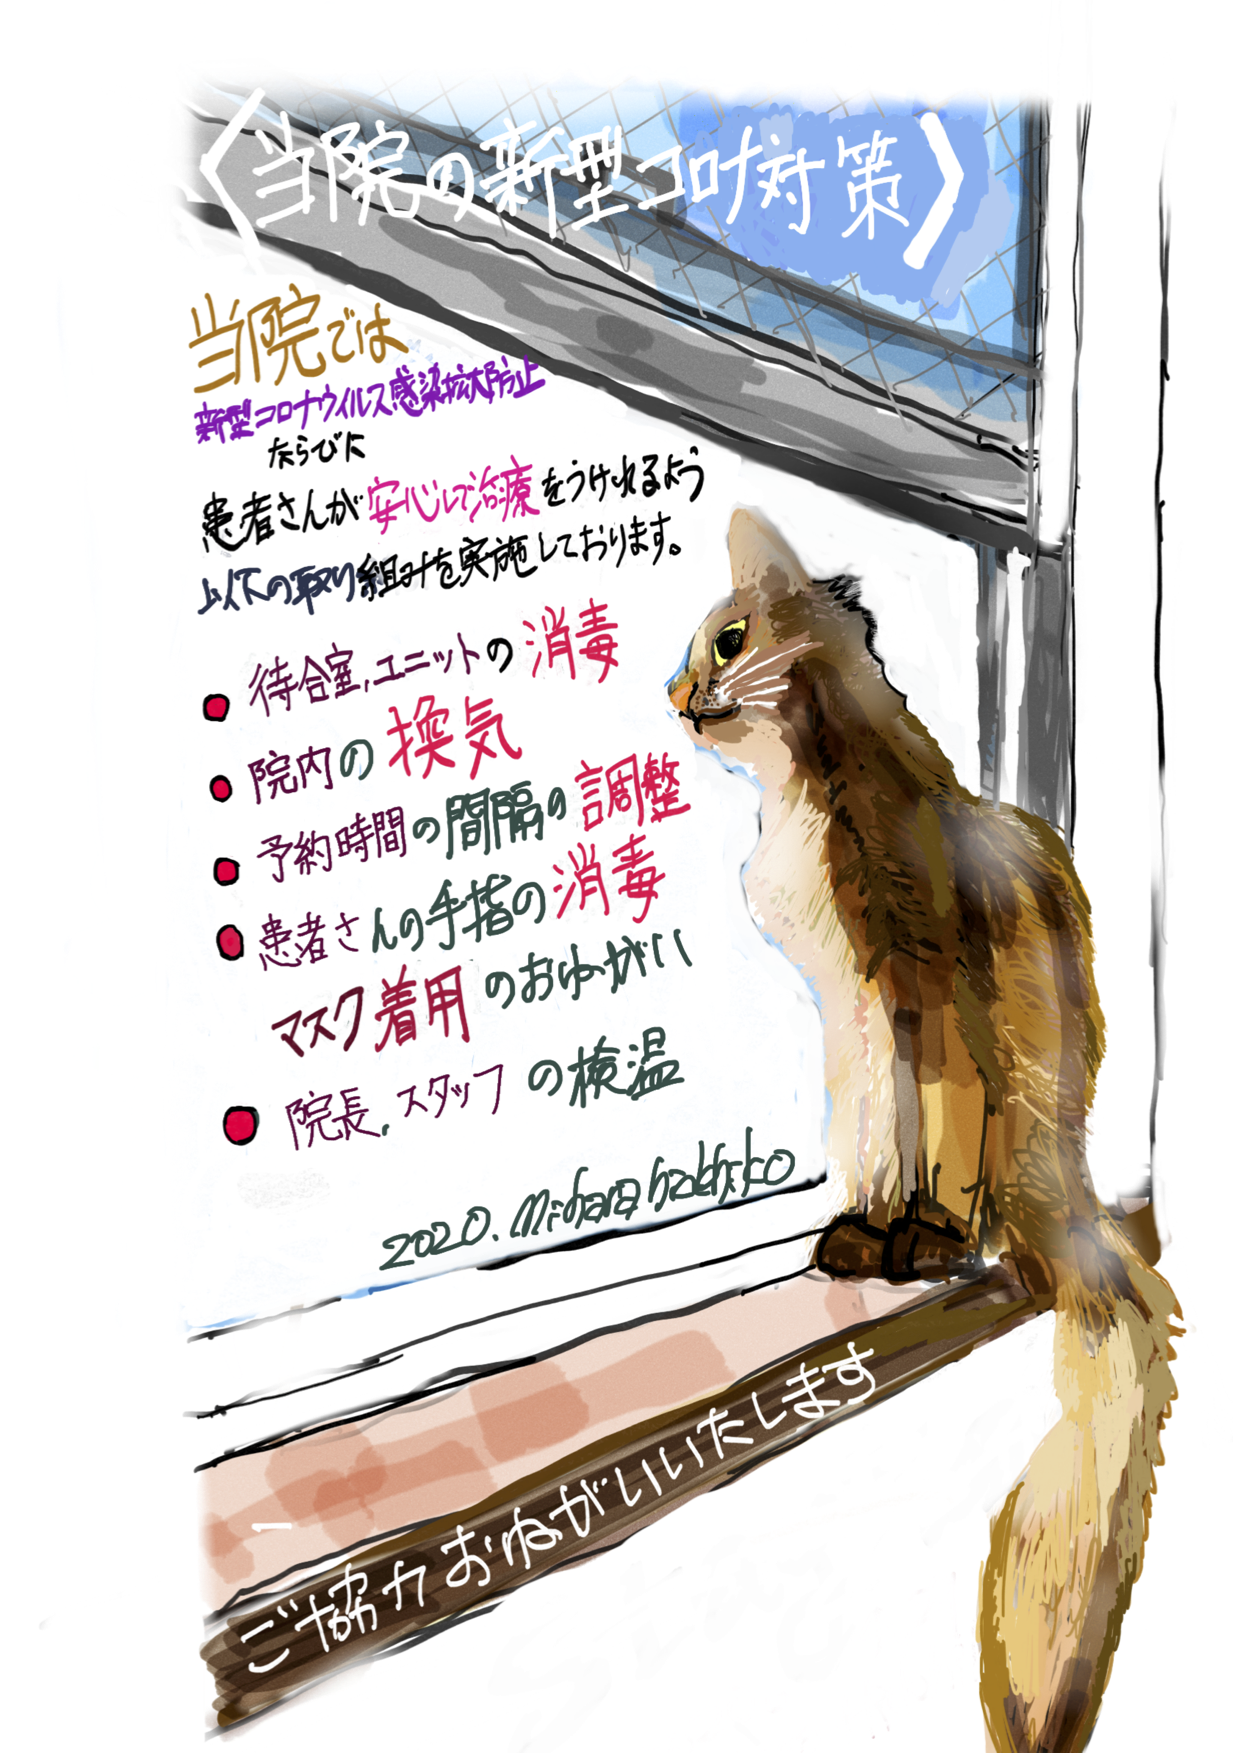 〈当院の新型コロナ対策〉
当院では
新型コロナウイルス感染拡大防止
ならびに
患者さんが安心して治療をうけれるよう
以下の取り組みを実施しております。
● 待合室,ユニットの消毒
● 院内の換気
● 予約時間の間隔の調整
● 患者さんの手指の消毒
マスク着用のおねがい
● 院長,スタッフの検温
2020.
ご協力おねがいいたします